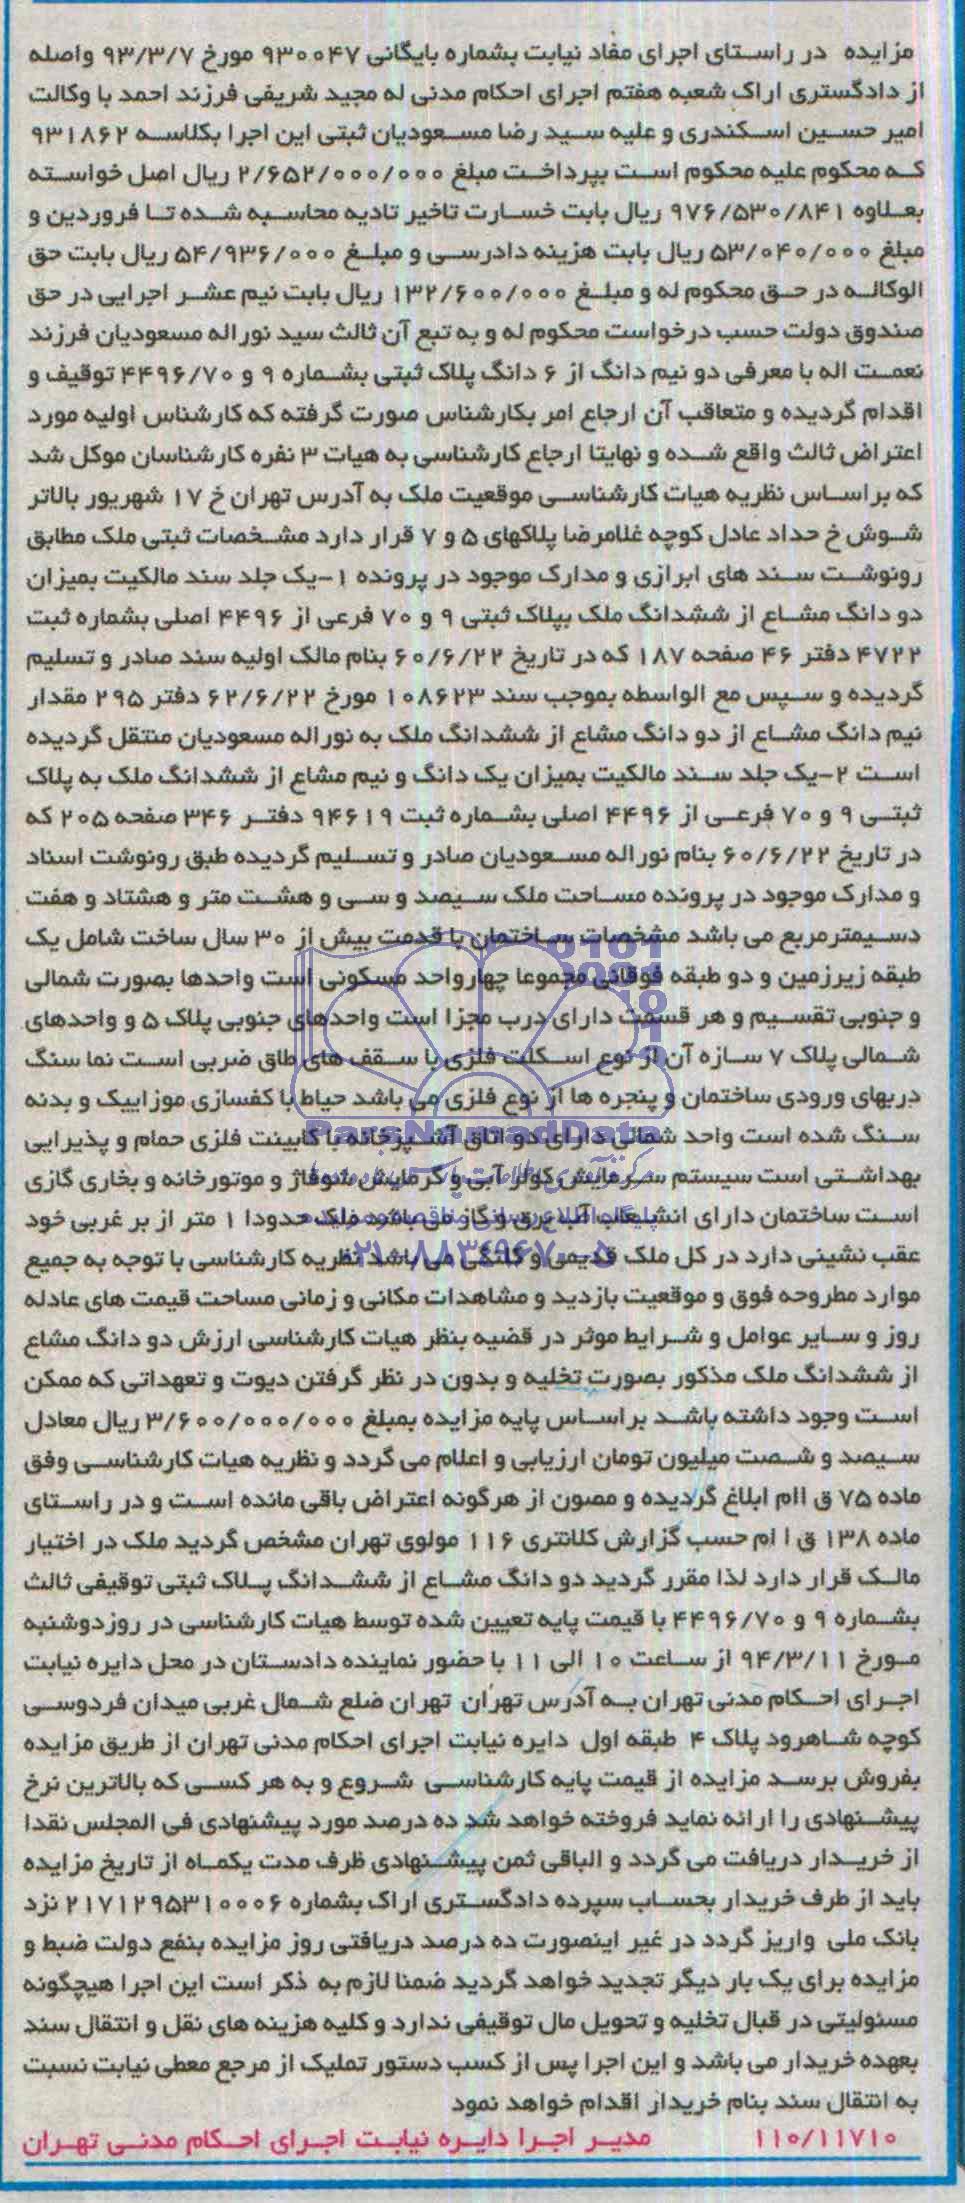 مزایده در راستای اجرای مفاد نیابت بشماره بایگانی ۹۳۰۰۴۷ مورخ ۹۳/۳/۷ واصله
از دادگستری اراک شعبه هفتم اجرای احکام مدنی له مجید شریفی فرزند احمد با وکالت
امیر حسین اسکندری و علیه سید رضا مسعودیان ثبتی این اجرا بکلاسه ۹۳۱۸۶۲
که محکوم علیه محکوم است بپرداخت مبلغ ۲/۶۵۲/۰۰۰/۰۰۰ ریال اصل خواسته
بعلاوه ۹۷۶/۵۳۰/۸۴۱ ریال بابت خسارت تاخیر تادیه محاسبه شده تا فروردین و
مبلغ ۵۳/۰۴۰/۰۰۰ ریال بابت هزینه دادرسی و مبلغ ۵۴/۹۳۶/۰۰۰ ریال بابت حق
الوکاله در حق محکوم له و مبلغ ۱۳۲/۶۰۰/۰۰۰ ریال بابت نیم عشر اجرایی در حق
صندوق دولت حسب درخواست محکوم له و به تبع آن ثالث سید نوراله مسعودیان فرزند
نعمت اله با معرفی دو نیم دانگ از ۶ دانگ پلاک ثبتی بشماره ۹ و ۴۴۹۶/۷۰ توقیف و
اقدام گردیده و متعاقب آن ارجاع امر بکارشناس صورت گرفته که کارشناس اولیه مورد
اعتراض ثالث واقع شده و نهایتا ارجاع کارشناسی به هیات ۳ نفره کارشناسان موکل شد
که براساس نظریه هیات کارشناسی موقعیت ملک به آدرس تهران خ ۱۷ شهریور بالاتر
شوش خ حداد عادل کوچه غلامرضا پلاکهای ۵ و ۷ قرار دارد مشخصات ثبتی ملک مطابق
رونوشت سند های ابرازی و مدارک موجود در پرونده ۱-یک جلد سند مالکیت بمیزان
دو دانگ مشاع از ششدانگ ملک بپلاک ثبتی ۹ و ۷۰ فرعی از ۴۴۹۶ اصلی بشماره ثبت
۴۷۲۲ دفتر ۴۶ صفحه ۱۸۷ که در تاریخ ۶۰/۶/۲۲ بنام مالک اولیه سند صادر و تسلیم
گردیده و سپس مع الواسطه بموجب سند ۱۰۸۶۲۳ مورخ ۶۲/۶/۲۲ دفتر ۲۹۵ مقدار
نیم دانگ مشاع از دو دانگ مشاع از ششدانگ ملک به نوراله مسعودیان منتقل گردیده
است ۲-یک جلد سند مالکیت بمیزان یک دانگ و نیم مشاع از ششدانگ ملک به پلاک
ثبتی ۹ و ۷۰ فرعی از ۴۴۹۶ اصلی بشماره ثبت ۹۴۶۱۹ دفتر ۳۴۶ صفحه ۲۰۵ که
در تاریخ ۶۰/۶/۲۲ بنام نوراله مسعودیان صادر و تسلیم گردیده طبق رونوشت اسناد
و مدارک موجود در پرونده مساحت ملک سیصد و سی و هشت متر و هشتاد و هفت
دسیمترمربع می باشد مشخصات ساختمان با قدمت بیش از ۳۰ سال ساخت شامل یک
طبقه زیرزمین و دو طبقه فوقانی مجموعا چهارواحد مسکونی است واحدها بصورت شمالی
و جنوبی تقسیم و هر قسمت دارای درب مجزا است واحدهای جنوبی پلاک ۵ و واحدهای
شمالی پلاک ۷ سازه آن از نوع اسکلت فلزی با سقف های طاق ضربی است نما سنگ
دربهای ورودی ساختمان و پنجره ها از نوع فلزی می باشد حیاط با کفسازی موزاییک و بدنه
سنگ شده است واحد شمالی دارای دو اتاق آشپزخانه با کابینت فلزی حمام و پذیرایی
بهداشتی است سیستم سرمایش کولر آبی و گرمایش شوفاژ و موتورخانه و بخاری گازی
است ساختمان دارای انشعاب آب برق و گاز می باشد ملک حدودا ۱ متر از بر غربی خود
عقب نشینی دارد در کل ملک قدیمی و کلنگی می باشد نظریه کارشناسی با توجه به جمیع
موارد مطروحه فوق و موقعیت بازدید و مشاهدات مکانی و زمانی مساحت قیمت های عادله
روز و سایر عوامل و شرایط موثر در قضیه بنظر هیات کارشناسی ارزش دو دانگ مشاع
از ششدانگ ملک مذکور بصورت تخلیه و بدون در نظر گرفتن دیوت و تعهداتی که ممکن
است وجود داشته باشد براساس پایه مزایده بمبلغ ۳/۶۰۰/۰۰۰/۰۰۰ ریال معادل
سیصد و شصت میلیون تومان ارزیابی و اعلام می گردد و نظریه هیات کارشناسی وفق
ماده ۷۵ ق اام ابلاغ گردیده و مصون از هرگونه اعتراض باقی مانده است و در راستای
ماده ۱۳۸ ق ا ام حسب گزارش کلانتری ۱۱۶ مولوی تهران مشخص گردید ملک در اختیار
مالک قرار دارد لذا مقرر گردید دو دانگ مشاع از ششدانگ پلاک ثبتی توقیفی ثالث
بشماره ۹ و ۴۴۹۶/۷۰ با قیمت پایه تعیین شده توسط هیات کارشناسی در روزدوشنبه
مورخ ۹۴/۳/۱۱ از ساعت ۱۰ الی ۱۱ با حضور نماینده دادستان در محل دایره نیابت
اجرای احکام مدنی تهران به آدرس تهران تهران ضلع شمال غربی میدان فردوسی
کوچه شاهرود پلاک ۴ طبقه اول دایره نیابت اجرای احکام مدنی تهران از طریق مزایده
بفروش برسد مزایده از قیمت پایه کارشناسی شروع و به هر کسی که بالاترین نرخ
پیشنهادی را ارائه نماید فروخته خواهد شد ده درصد مورد پیشنهادی فی المجلس نقدا
از خریدار دریافت می گردد و الباقی ثمن پیشنهادی ظرف مدت یکماه از تاریخ مزایده
باید از طرف خریدار بحساب سپرده دادگستری اراک بشماره ۲۱۷۱۲۹۵۳۱۰۰۰۶ نزد
بانک ملی واریز گردد در غیر اینصورت ده درصد دریافتی روز مزایده بنفع دولت ضبط و
مزایده برای یک بار دیگر تجدید خواهد گردید ضمنا لازم به ذکر است این اجرا هیچگونه
مسئولیتی در قبال تخلیه و تحویل مال توقیفی ندارد و کلیه هزینه های نقل و انتقال سند
بعهده خریدار می باشد و این اجرا پس از کسب دستور تملیک از مرجع معطی نیابت نسبت
به انتقال سند بنام خریدار اقدام خواهد نمود
۱۱۰/۱۱۷۱۰ مدیر اجرا دایره نیابت اجرای احکام مدنی تهران
ParsNamadData
۰۲۱-۸۸۳۴۹۶۷۰-۵